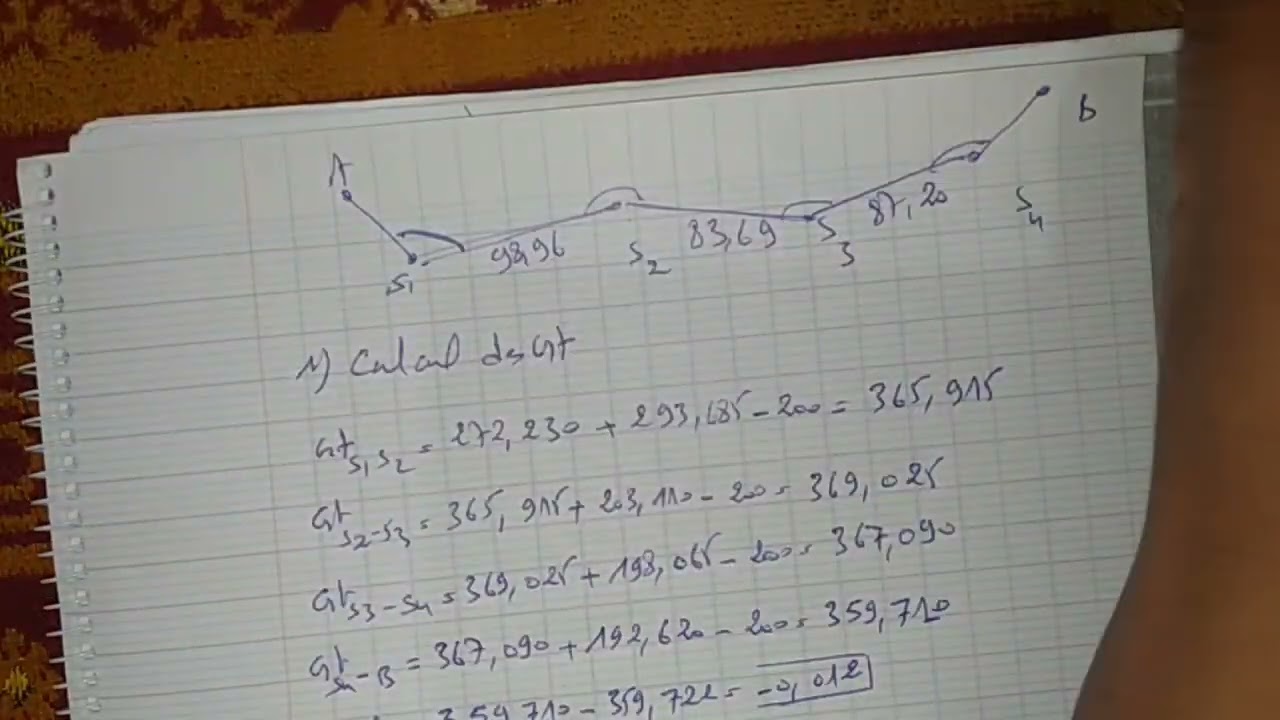 A
B
S1
98,96
S2
83,69
S3
87,20
S4
1) Calcul des Gt
Gt S1S2 = 272,230 + 293,685 - 200 = 365,915
Gt S2-S3 = 365,915 + 203,110 - 200 = 369,025
Gt S3-S4 = 369,025 + 198,065 - 200 = 367,090
Gt S4-B = 367,090 + 192,620 - 200 = 359,710
359,710 - 359,722 = -0,012